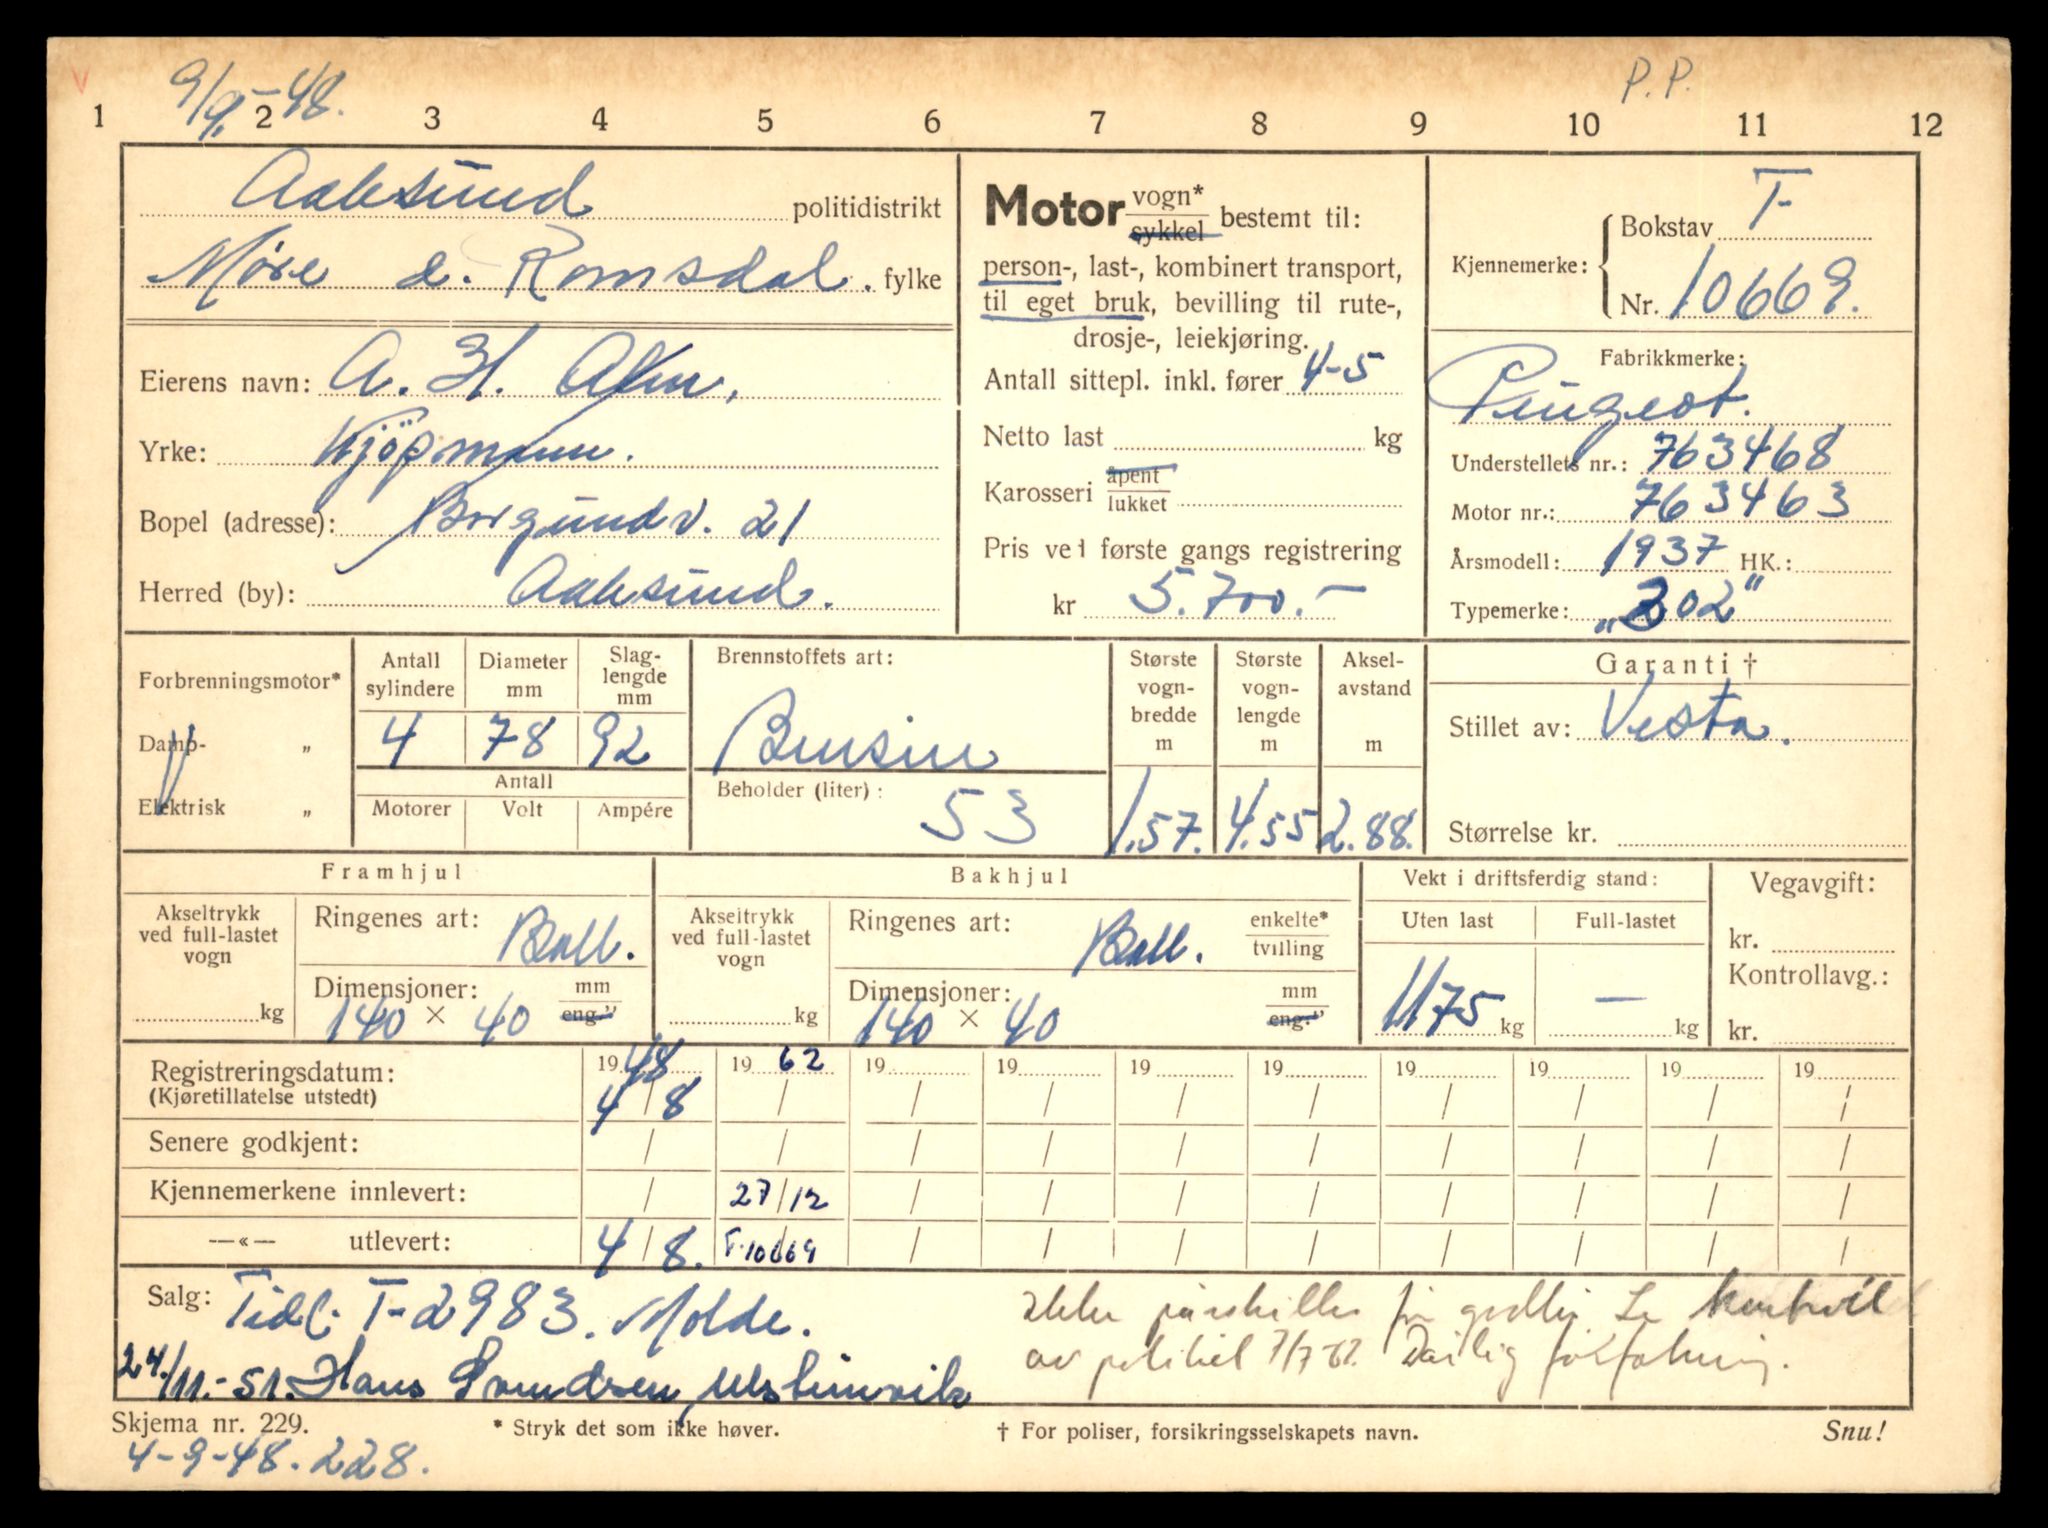 9/9-48.
P.P.
1 2 3 4 5 6 7 8 9 10 11 12
Aalesund politidistrikt
Møre & Romsdal. fylke
Eierens navn: A. H. Alm,
Yrke: Kjøpmann.
Bopel (adresse): Borgundv. 21
Herred (by): Aalesund.
Motor vogn* sykkel bestemt til:
person-, last-, kombinert transport,
til eget bruk, bevilling til rute-,
drosje-, leiekjøring.
Antall sittepl. inkl. fører 4-5
Netto last kg
Karosseri åpent lukket
Pris ved første gangs registrering
kr 5.700.-
Kjennemerke: Bokstav T-
Nr. 10669.
Fabrikkmerke:
Peugeot.
Understellets nr.: 763468
Motor nr.: 763463
Årsmodell: 1937 HK.:
Typemerke: „302"
Forbrenningsmotor*
Damp- „
Elektrisk „
Antall sylindere 4
Diameter mm 78
Slaglengde mm 92
Antall
Motorer Volt Ampére
Brennstoffets art:
Bensin
Beholder (liter): 53
Største vognbredde m 1.57.
Største vognlengde m 4.55
Akselavstand m 2.88.
Garanti †
Stillet av: Vesta.
Størrelse kr.
Framhjul
Akseltrykk ved full-lastet vogn kg
Ringenes art: Ball.
Dimensjoner: mm eng."
140 × 40
Bakhjul
Akseltrykk ved full-lastet vogn kg
Ringenes art: Ball. enkelte* tvilling
Dimensjoner: mm eng."
140 × 40
Vekt i driftsferdig stand:
Uten last Full-lastet
1175 kg — kg
Vegavgift:
kr.
Kontrollavg.:
kr.
Registreringsdatum: 19 48 19 62 19 19 19 19 19 19 19 19
(Kjøretillatelse utstedt) 4/8 / / / / / / / / /
Senere godkjent: / / / / / / / / / /
Kjennemerkene innlevert: / 27/12 / / / / / / / /
—«— utlevert: 4/8. T-10669 / / / / / / / /
Salg: Tidl. T-2983. Molde.
24/11.-51. Hans Svendsen, Ulsteinvik
kontroll
av politiet 7/7-62. Dårlig forfatning.
Skjema nr. 229.
* Stryk det som ikke høver.
† For poliser, forsikringsselskapets navn.
Snu!
4-9-48. 228.